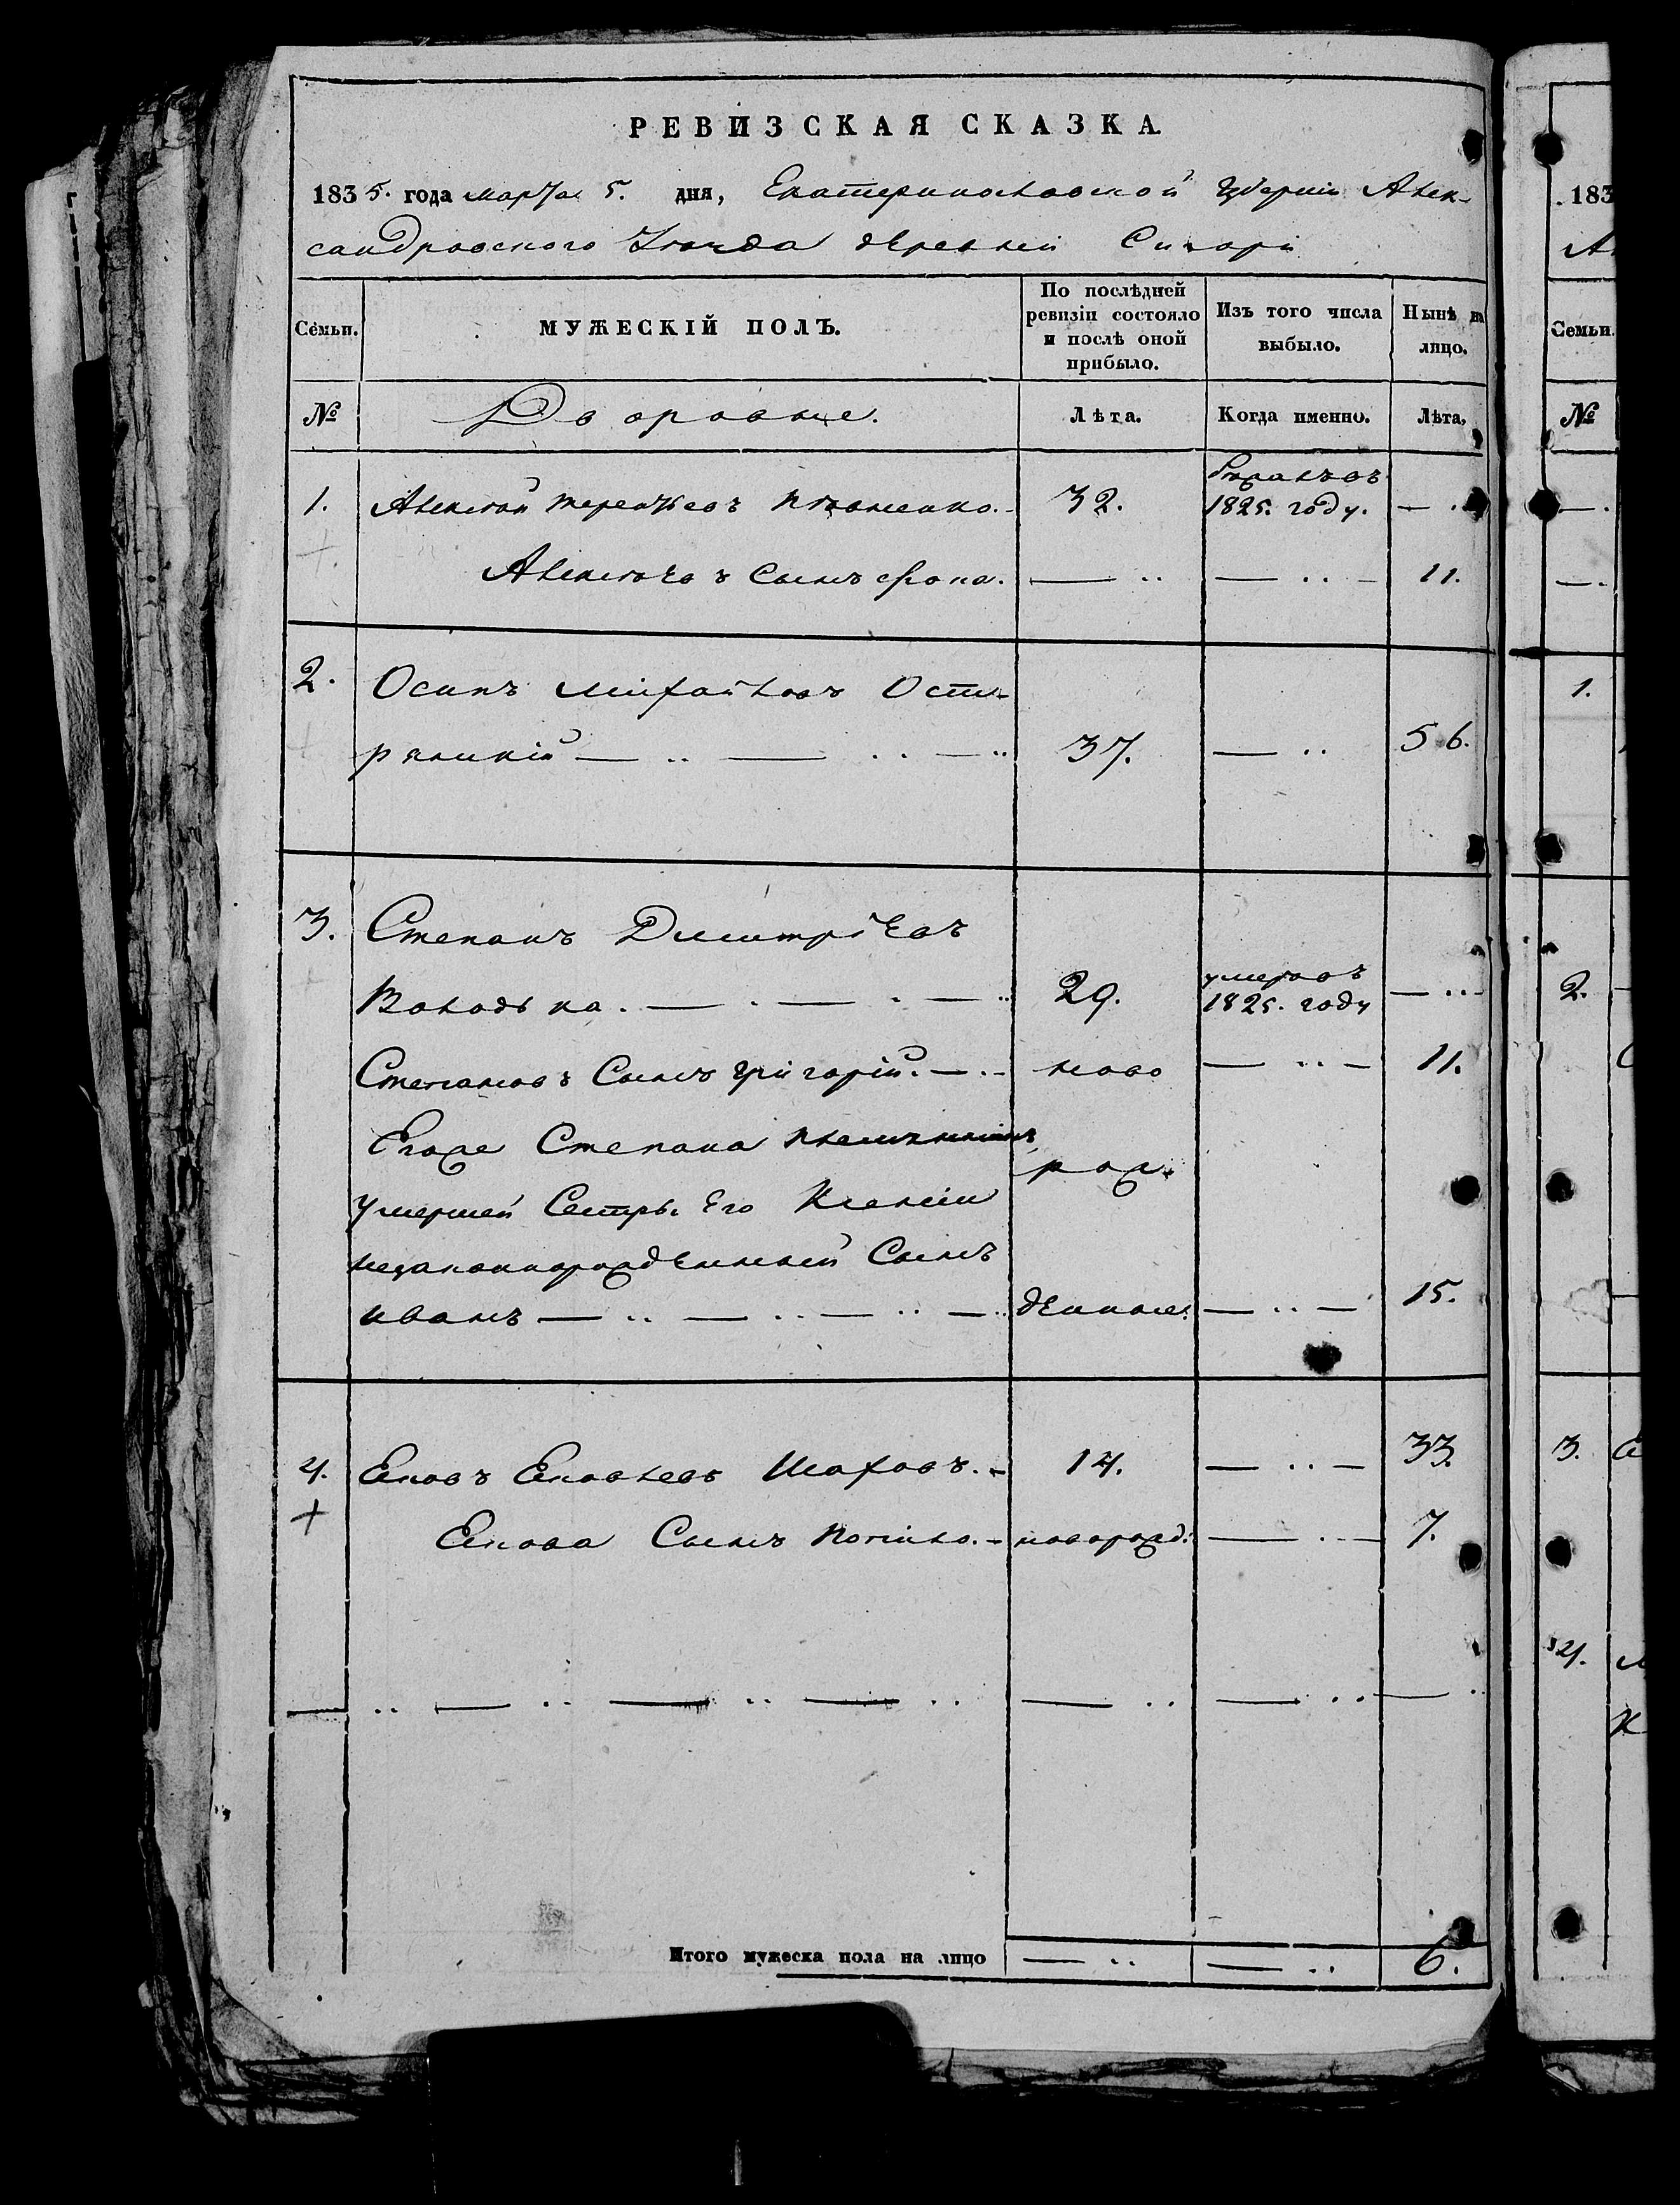 РЕВИЗСКАЯ СКАЗКА.
1835. года марта 5. дня, Екатеринославской Губерніи Алек-
сандровского Уезда деревни
Семьи. МУЖЕСКІЙ ПОЛЪ. По послѣдней ревизіи состояло и послѣ оной прибыло. Изъ того числа выбыло. Нынѣ на лицо.
№ Дворовые. Лѣта. Когда именно. Лѣта.
1. Алексей Терентьевъ 32. 1825. году. — .
Алексеевъ Сынъ — .. — .. — 11.
2. Осипъ Михайловъ Ости-
— .. — .. — .. 37. — .. 56.
3. Степанъ Димитріевъ
Володька. — . — . — .. 29. умеръ въ 1825. году — ..
Степановъ Сынъ Григорій. — .. ново — .. — 11.
Егоже Степана племянникъ, рож-
умершей Сестры Его Ксеніи
незаконнорожденный Сынъ
Иванъ — .. — .. — .. — .. денные. — .. — 15.
4. Ековъ Ековлевъ Шаховъ. - 14. — .. — 33.
Екова Сынъ - новорожд: — .. — 7.
— .. — .. — .. — .. — .. — .. — ..
Итого мужеска пола на лицо — .. — .. 6.
183
Семьи.
№
— .
— .
1.
2.
3.
4.